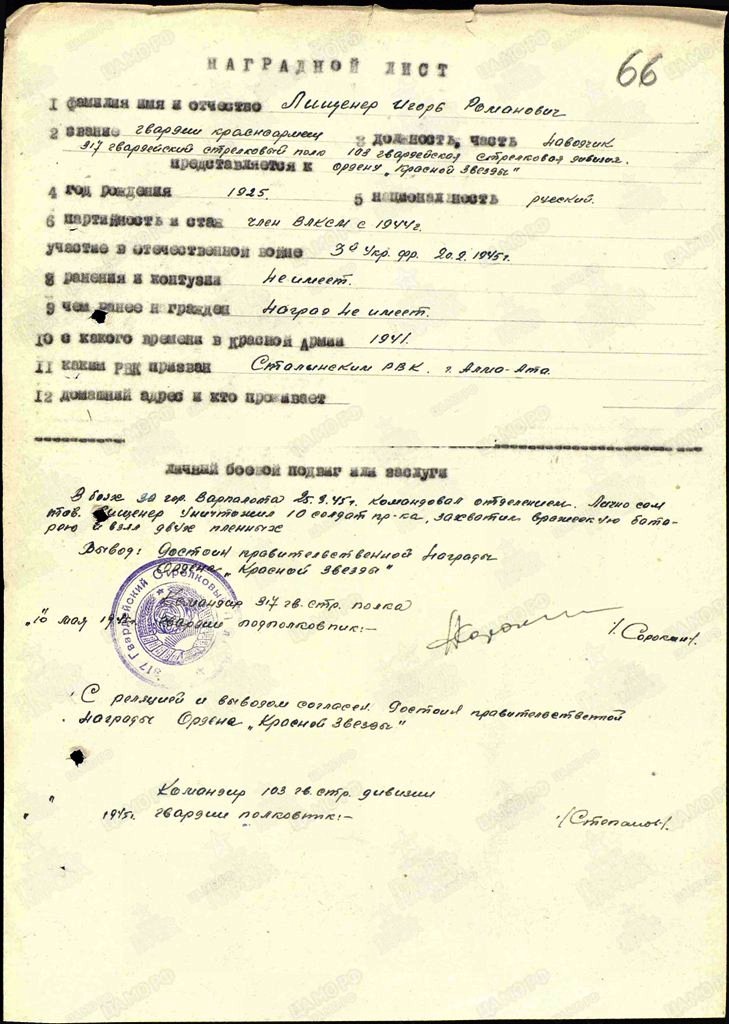 НАГРАДНОЙ ЛИСТ
66
1 фамилия имя и отчество Лищенер Игорь Романович
2 звание гвардии красноармеец 3 должность, часть наводчик
317 гвардейский стрелковый полк 103 гвардейская стрелковая дивизия.
представляется к ордену „Красной Звезды"
4 год рождения 1925. 5 национальность русский.
6 партийность и стаж член ВЛКСМ с 1944г.
участие в отечественной войне 3й Укр. фр. 20.2.1945г.
8 ранения и контузии Не имеет.
9 чем ранее награжден Наград не имеет.
10 с какого времени в Красной Армии 1941.
11 каким РВК призван Сталинским РВК. г. Алма-Ата.
12 домашний адрес и кто проживает
личный боевой подвиг или заслуги
В боях за гор. Варпалота 25.3.45г. командовал отделением. Лично сам
тов. Лищенер уничтожил 10 солдат пр-ка, захватил вражескую бата-
рею и взял двух пленных
Вывод: Достоин правительственной награды
Ордена „Красной Звезды"
Командир 317 гв. стр. полка
„10" мая 1945г. гвардии подполковник:- /Сорокин/.
317 Гвардейский Стрелковый
С реляцией и выводом согласен. Достоин правительственной
награды Ордена „Красной Звезды"
Командир 103 гв. стр. дивизии
„ " 1945г. гвардии полковник:- /Степанов/.
ЦАМО РФ